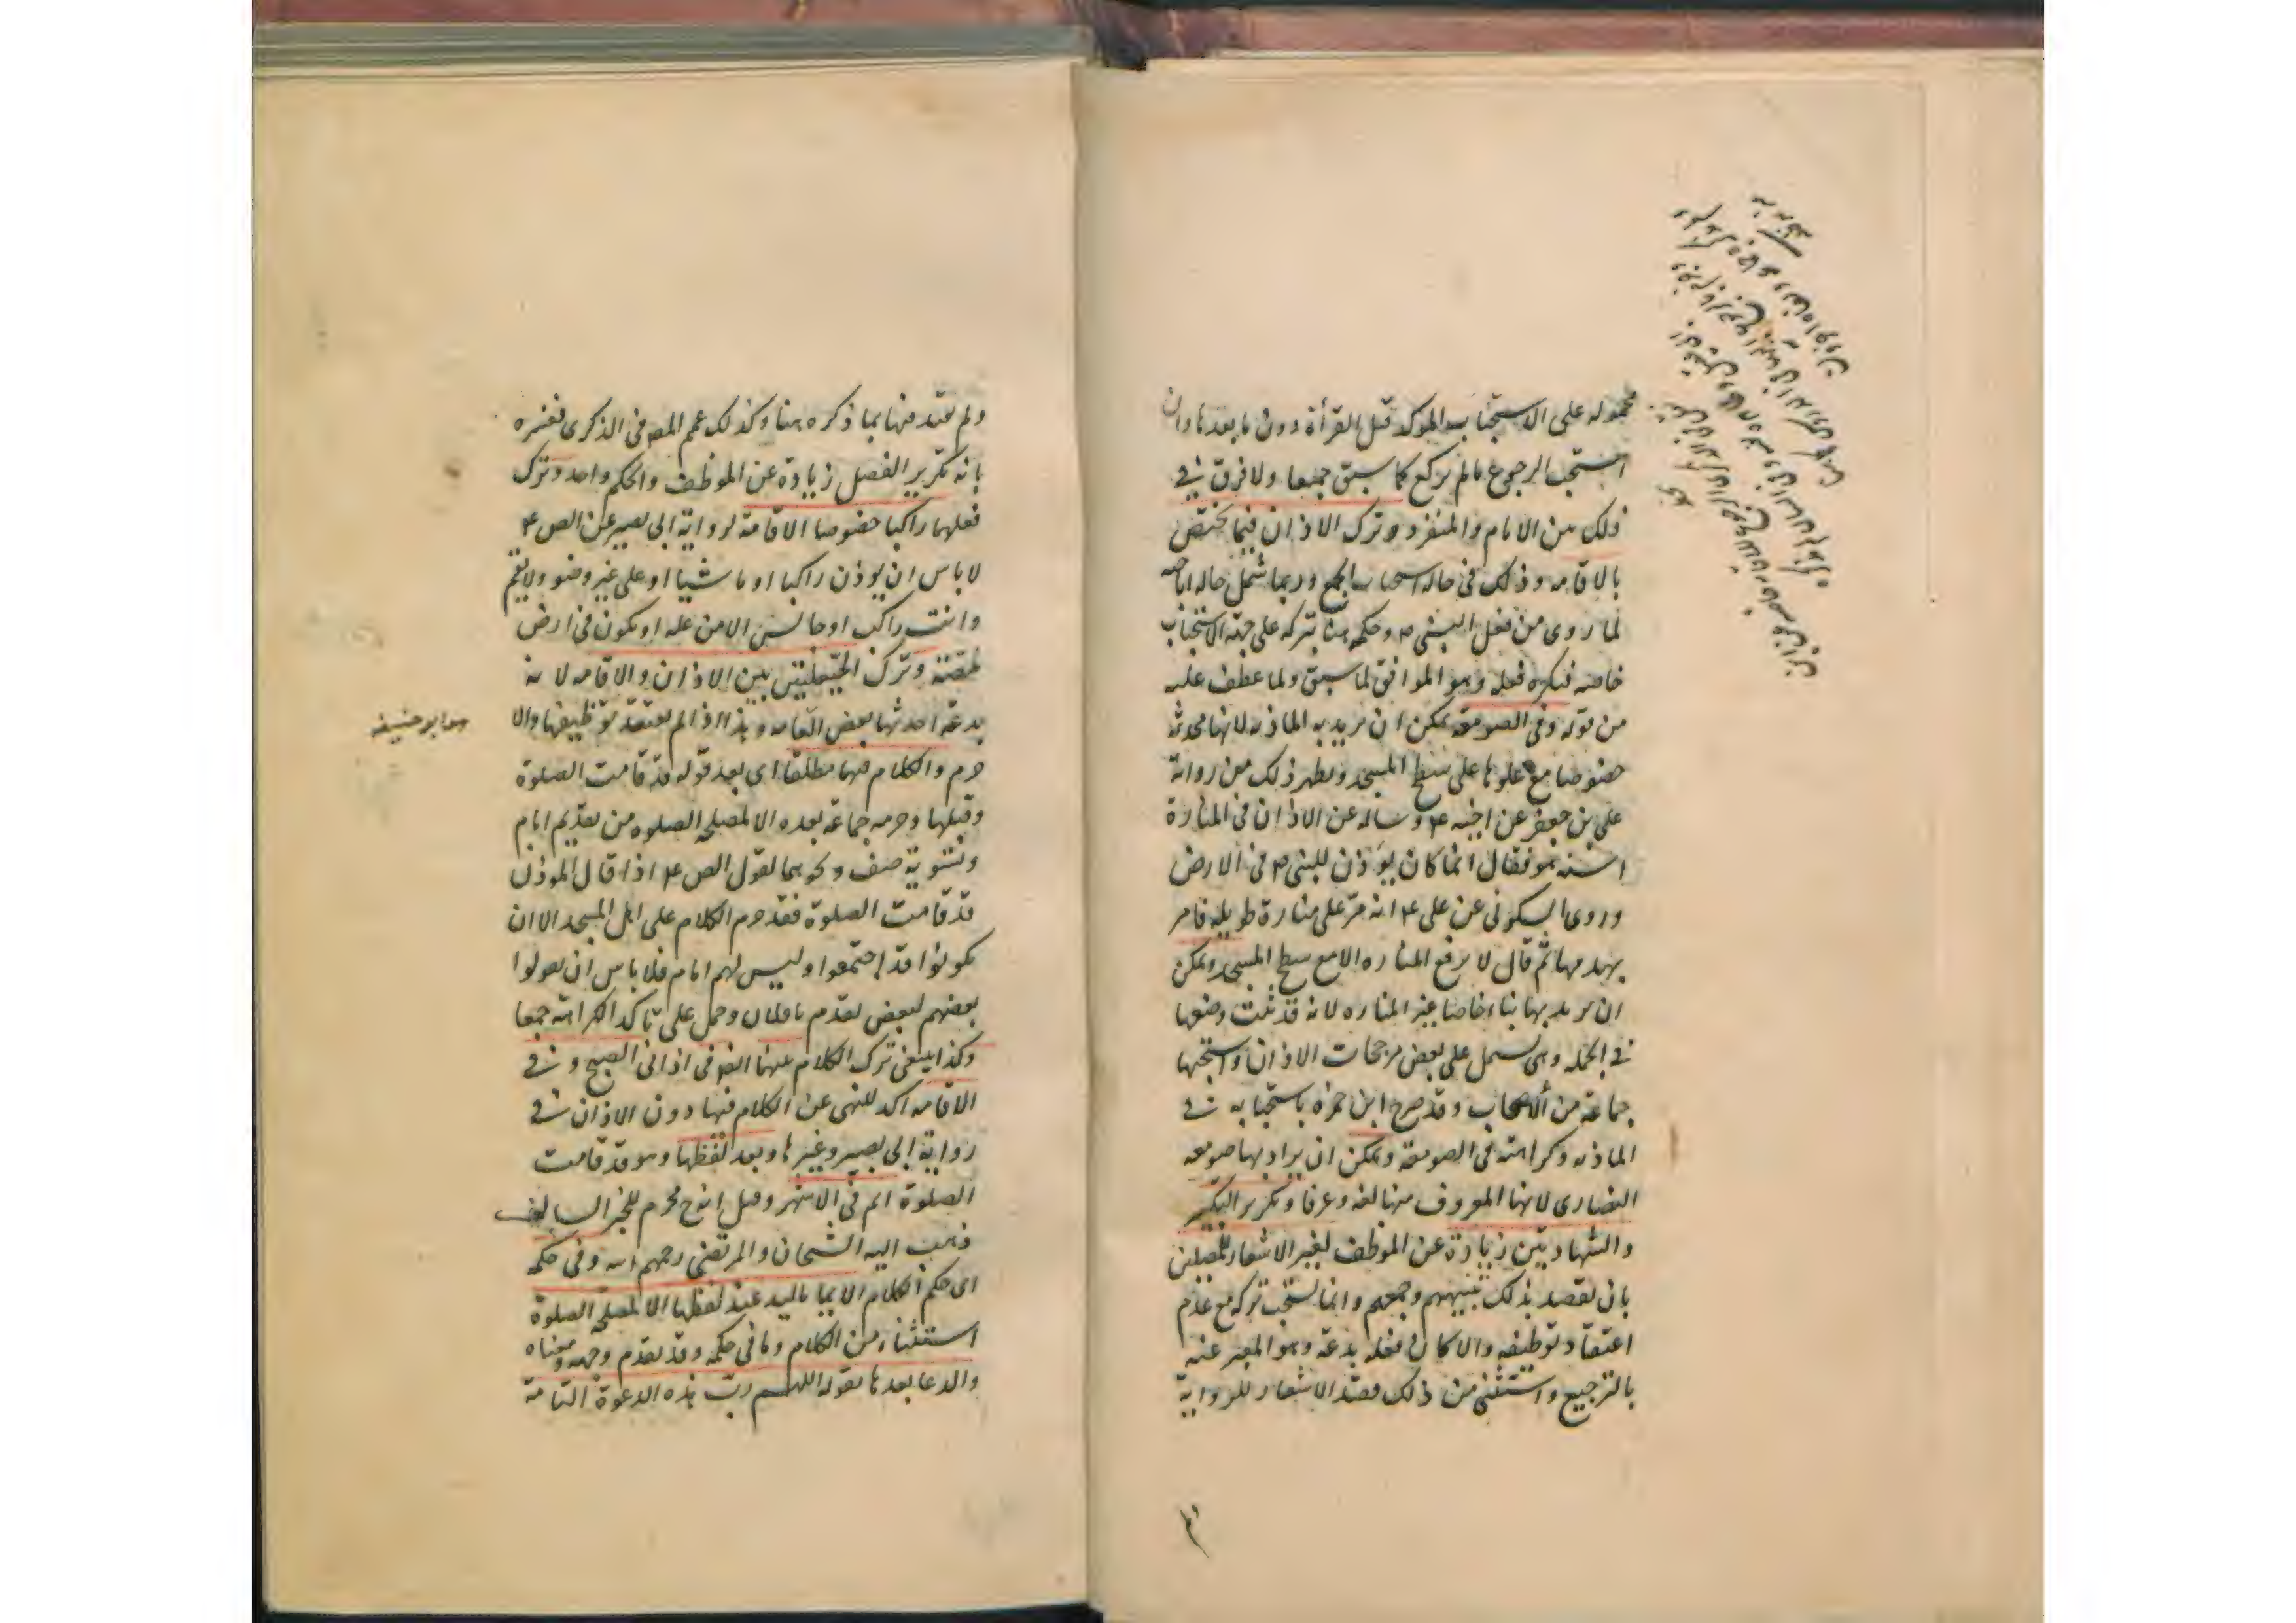 محموله على الاستحباب الموكد قبل القرأة دون ما بعدها وان
استحب الرجوع مالم يركع كما سبق جميعا ولا فرق في
ذلك بين الامام والمنفرد وترك الاذان فيما يختص
بالاقامه وذلك في حاله استحباب الجمع وربما شمل حاله اباحته
لما روى من فعل النبي ص وحكمه هنا بتركه على جهة الاستحباب
خاصه فيكره فعله وهو الموافق لما سبق ولما عطف عليه
من قوله وفي الصومعة يمكن ان يريد به الماذنه لانها محدثه
خصوصا مع علوها على سطح المسجد ويظهر ذلك من رواية
على بن جعفر عن اخيه ع وساله عن الاذان في المنارة
اسنة هو فقال انما كان يوذن للنبي ص في الارض
وروى السكوني عن على ع انه مر على منارة طويله فامر
بهدمها ثم قال لا ترفع المناره الا مع سطح المسجد ويمكن
ان يريد بها بناء خاصا غير المناره لانه قد ثبت وضعها
في الجمله وهي تشمل على بعض مرجحات الاذان واستحبها
جماعة من الاصحاب وقد صرح ابن حمزه باستحبابه في
الماذنه وكراهته في الصومعة ويمكن ان يراد بها صومعه
النصارى لانها المعروف منها لغه وعرفا وتكرير التكبير
والشهادتين زيادة عن الموظف لغير الاشعار للمصلين
بان يقصد بذلك تنبيههم وجمعهم وانما يستحب تركه مع عدم
اعتقاد توظيفه والا كان فعله بدعة وهو المعبر عنه
بالترجيع واستثنى من ذلك قصد الاشعار للرواية
ولم يقيد فيها بما ذكره هنا وكذلك عمم المص في الذكرى ففسره
بانه تكرير الفصل زيادة عن الموظف والحكم واحد وترك
فعلهما راكبا خصوصا الاقامة لرواية ابي بصير عن الص ع
لا باس ان يوذن راكبا او ماشيا او على غير وضو ولا يقيم
وانت راكب او جالس الا من عله او يكون في ارض
ملصّة وترك الحيّعلتين بين الاذان والاقامه لانه
بدعة احدثها بعض العامه وهذا اذا لم يعتقد توظيفها والا
حرم والكلام فيهما مطلقا اى بعد قوله قد قامت الصلوة
وقبلها وحرمه جماعة بعده الا لمصلحة الصلوه من تقديم امام
وتسوية صف ونحوهما لقول الص ع اذا قال الموذن
قد قامت الصلوة فقد حرم الكلام على اهل المسجد الا ان
يكونوا قد اجتمعوا وليس لهم امام فلا باس ان يقولوا
بعضهم لبعض تقدم يا فلان وحمل على تاكد الكراهة جمعا
وكذا ينبغي ترك الكلام عندنا ايضا في اذاني الصبح وفي
الاقامه اكد للنهى عن الكلام فيها دون الاذان في
رواية ابي بصير وغيرها وبعد لفظها وهو قد قامت
الصلوة اتم في الاشهر وقيل انه ح محرم للخبر السالف
ذهب اليه الشيخان والمرتضى رحمهم الله وفي حكمه
اى حكم الكلام الايما باليد عند لفظها الا لمصلحة الصلوة
استثناء من الكلام وما في حكمه وقد تقدم وجهه ومعناه
والدعا بعدها بقوله اللهم رب هذه الدعوة التامة
هو ابو حنيفه